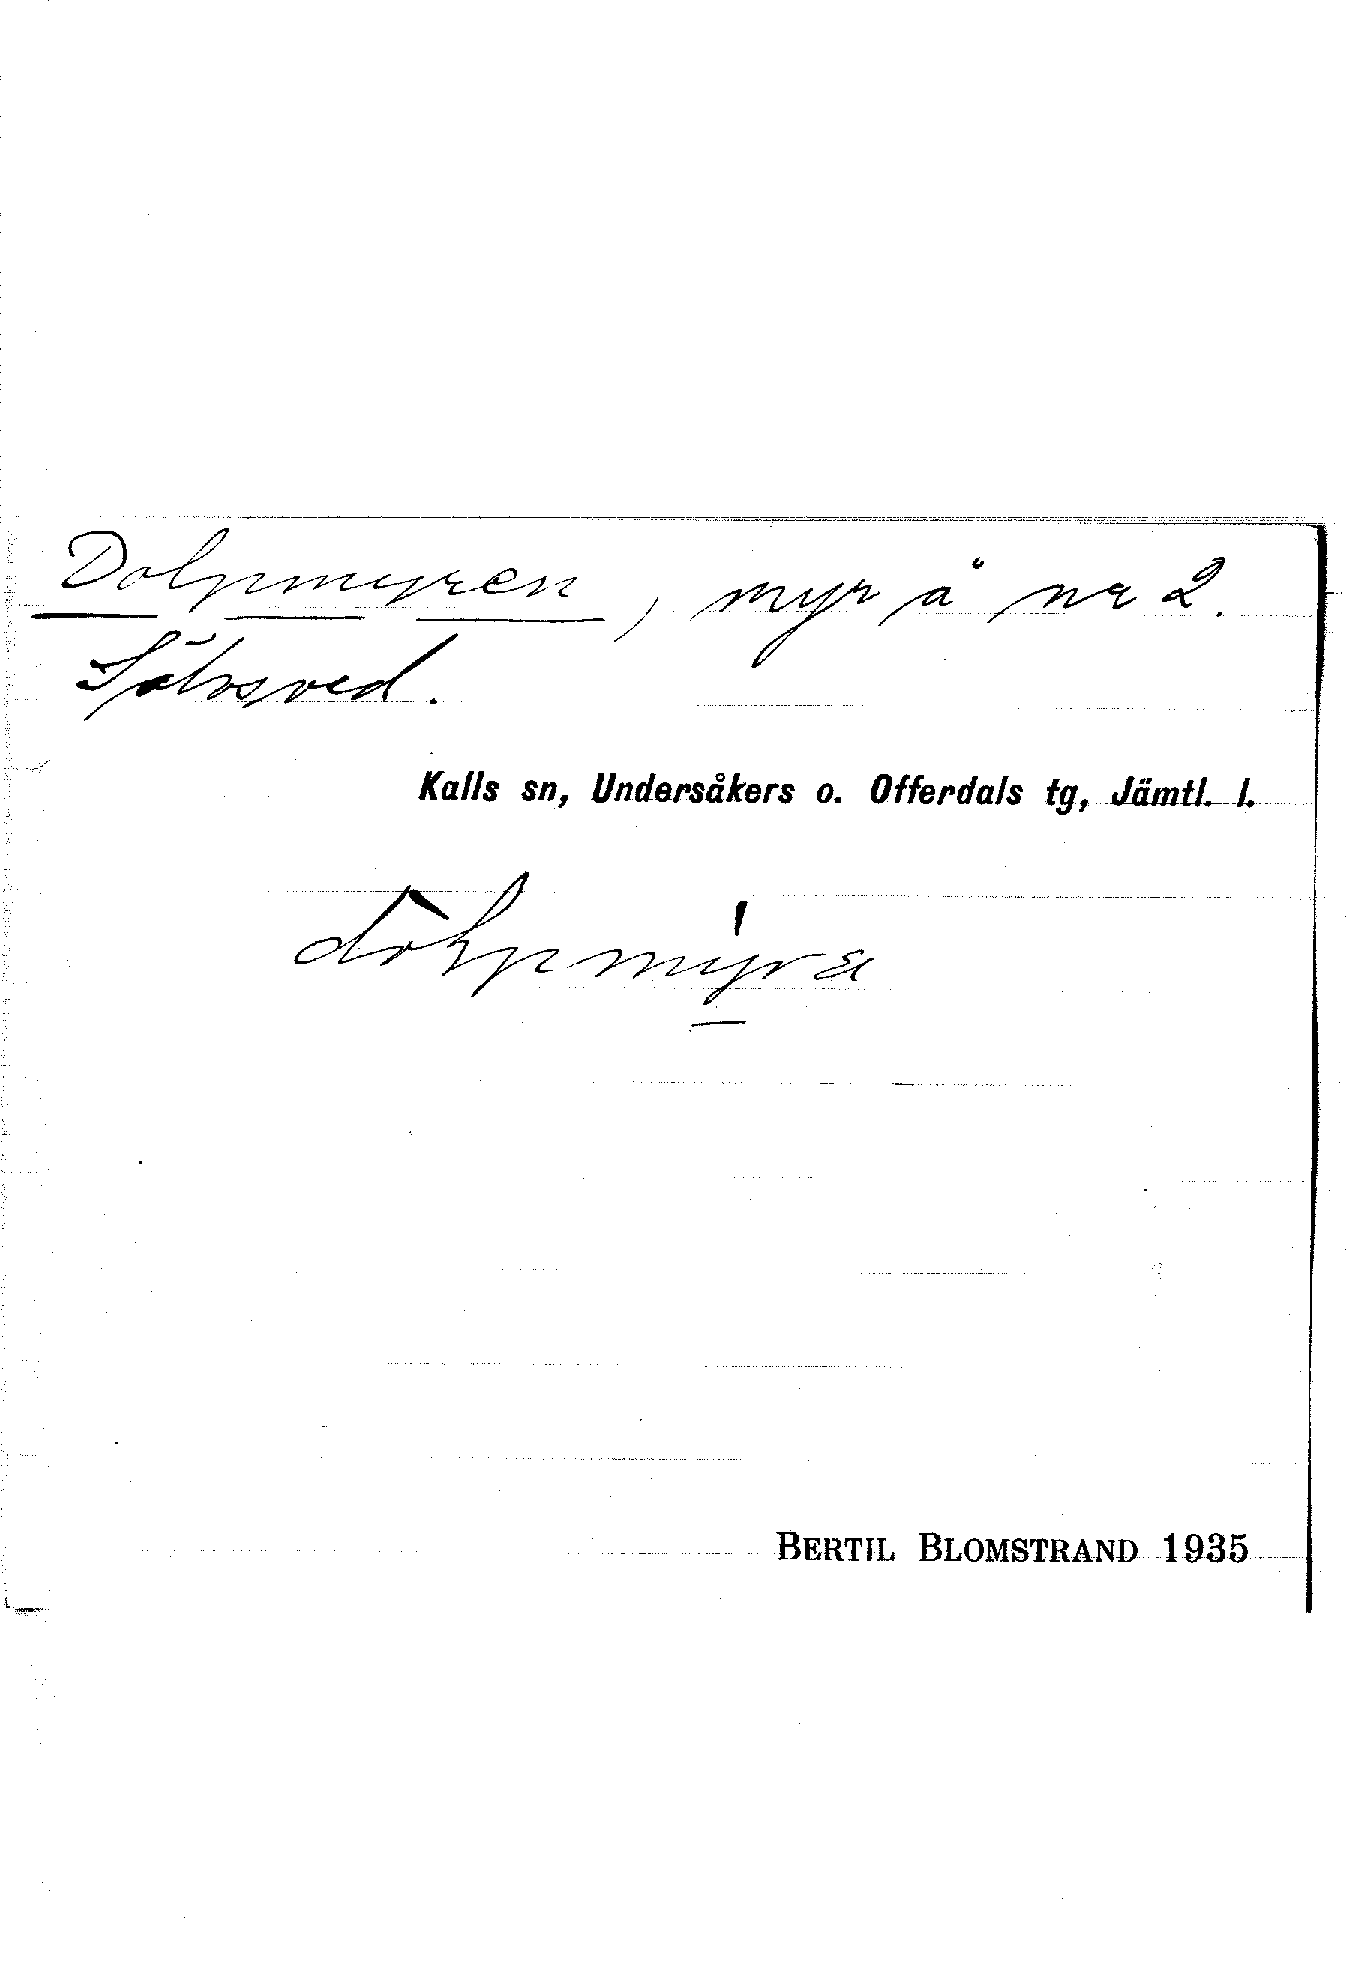 Dolpmyren, myr å nr 2.
Sölvsved.
Kalls sn, Undersåkers o. Offerdals tg, Jämtl. l.
BERTIL BLOMSTRAND 1935